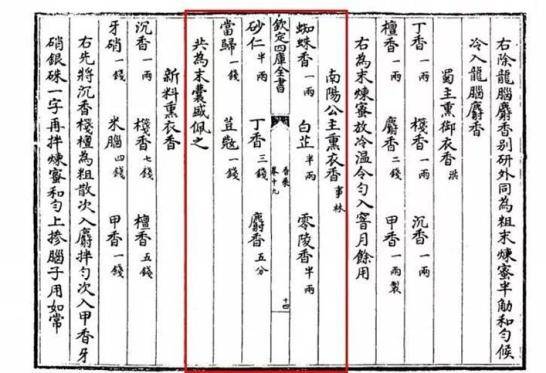 右除龍腦麝香別研外同為粗末煉蜜半觔和勻候
冷入龍腦麝香
蜀主熏御衣香 洪
丁香一兩 棧香一兩 沉香一兩
檀香一兩 麝香二錢 甲香一兩製
右為末煉蜜放冷溫令勻入窨月餘用
南陽公主熏衣香 事林
蜘蛛香一兩 白芷半兩 零陵香半兩
欽定四庫全書 香乘 卷十九 十四
砂仁半兩 丁香三錢 麝香五分
當歸一錢 荳蔻一錢
共為末囊盛佩之
新料熏衣香
沉香一兩 棧香七錢 檀香五錢
牙硝一錢 米腦四錢 甲香一錢
右先將沉香棧檀為粗散次入麝拌勻次入甲香牙
硝銀硃一字再拌煉蜜和勻上摻腦子用如常